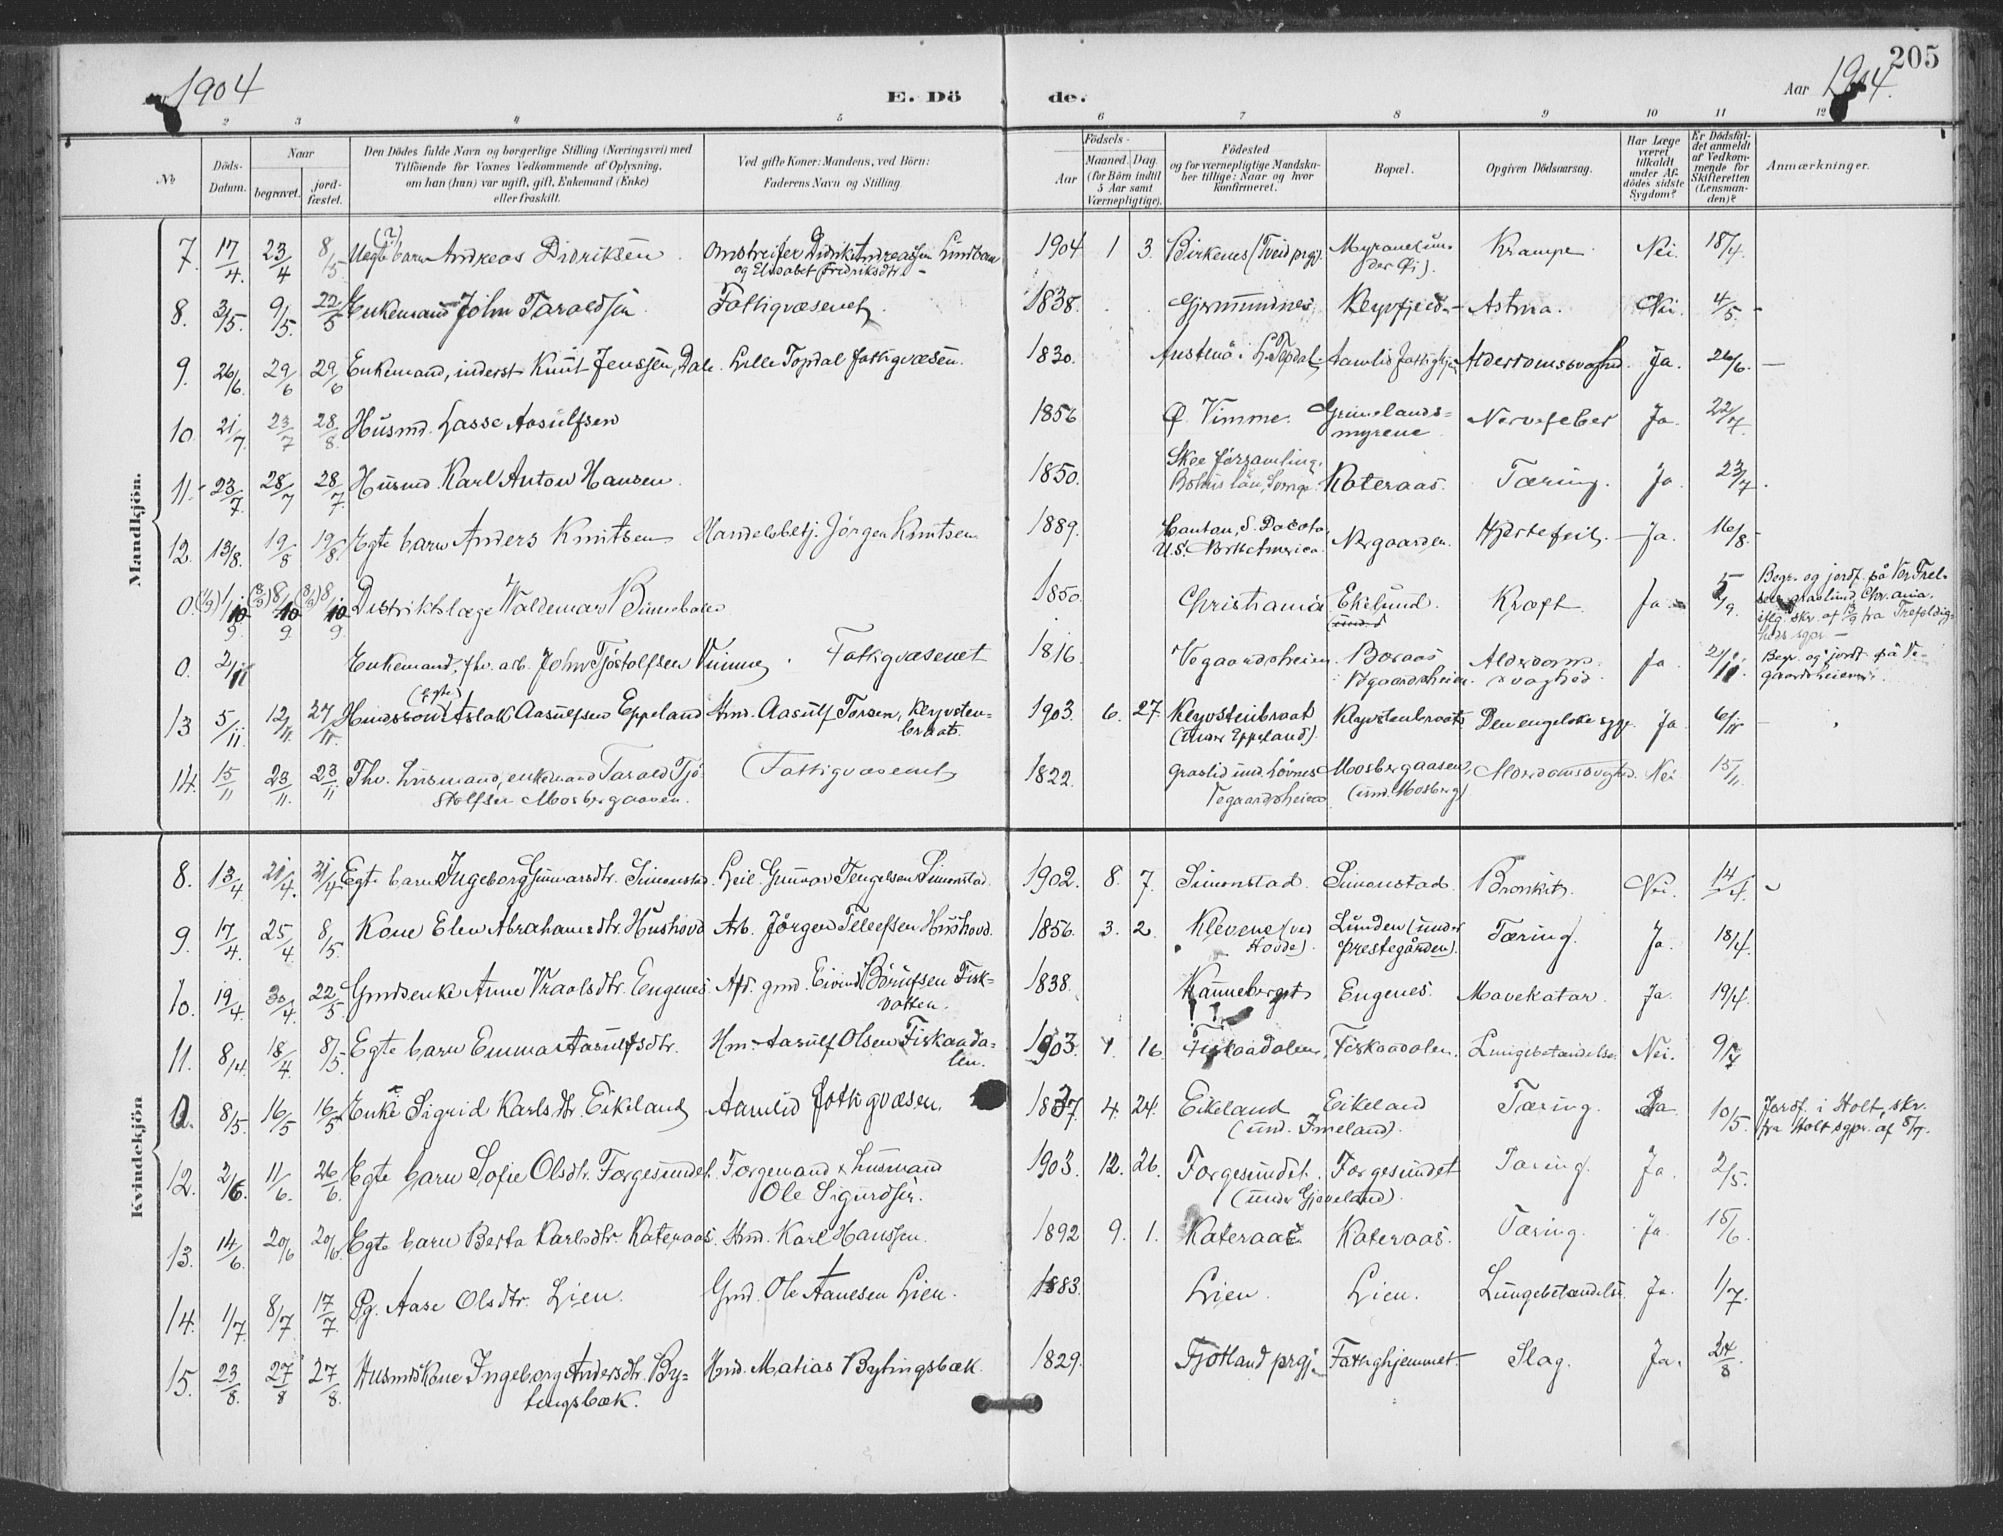 1904
E. Dö
de.
Aar 1904.
205
2 3 4 5 6 7 8 9 10 11 12
No
Döds-Datum.
Naar
begravet.
jord-fæstet.
Den Dödes fulde Navn og borgerlige Stilling (Næringsvei) med
Tilföiende for Voxnes Vedkommende af Oplysning,
om han (hun) var ugift, gift, Enkemand (Enke)
eller fraskilt.
Ved gifte Koner: Mandens, ved Börn:
Faderens Navn og Stilling.
Födsels-
Aar
Maaned. Dag.
(for Börn indtil
5 Aar samt
Værnepligtige).
Födested
og for værnepligtige Mandska-
ber tillige: Naar og hvor
konfirmeret.
Bopæl.
Opgiven Dödsaarsag.
Har Læge
været
tilkaldt
under Af-
dödes sidste
Sygdom?
Er Dödsfal-
det anmeldt
af Vedkom-
mende for
Skifteretten
(Lensman-
den)?
Anmærkninger.
Mandkjön.
7. 17/4 23/4 8/5 Uegte (?) barn Andreas Didriksen. Omstreifer Didrik Andreassen Lindtan og Elisabet Fredriksdtr. - 1904 1 3. Birkenes (Tveid prgj). Myrane (under Øi). Krampe. Nei. 18/4
8. 3/5. 9/5. 22/5 Enkemand John Taraldsen. Fattigvæsenet. 1838. Gjermundnes. Reppfjeld. Astma. Nei. 4/5. -
9. 26/6 29/6 29/6 Enkemand, inderst Knut Jenssen, Dale. Lille Topdal fattigvæsen. 1830. i L. Topdal. Aamlid fattighjem Alderdomssvaghed. Ja. 26/6. -
10. 21/7. 23/7 28/8. Husmd. Lasse Aasulfsen 1856 Ø. Vimme. Grimelands-
myrene. Nervefeber Ja. 22/7.
11. 23/7 28/7 28/7. Husmd. Karl Anton Hansen. 1850. Skee forsamling, Bohus län, Sverige. Kateraas. Tæring. Ja. 23/7.
12. 13/8. 19/8 19/8. Egte barn Anders Knutsen Handelsbetj. Jörgen Knutsen 1889. Canton, S. Dacota, U.S. Nordamerica. Nergaarden. Hjertefeil. Ja. 16/8.
0. (1/9) 1/10 9. (8/9) 8/10 9 (8/9) 8/10 9. Distriktslæge Valdemar 1850. Christiania Eikelund. Kræft. Ja. 5/9. Begr. og jordf. på Vor Frel-
sers gravlund, Chr.ania,
iflg. skr. af 13/9 fra Trefoldig-
heds sgpr. -
0. 2/11 Enkemand, fhv. arb. John Tjöstolfsen Vimme. Fattigvæsenet 1816. Vegaardsheien. Boraas Vegaardsheien. Alderdoms-
svaghed Ja. 2/11. Begr. og jordf. på Ve-
gaardsheien.
13 5/11. 12/11. 27/11. Husmdssøn (Egte) Aslak Aasulfsen Eppeland Hmd. Aasulf Torsen, Kleyvsten-
braat. 1903. 6. 27. Kleyvstenbraat (under Eppeland). Kleyvstenbraat. Den engelske syge. Ja. 6/11 -
14. 15/11 23/11. 23/11. Fhv. husmand, enkemand Tarald Tjö-
stolfsen Mosbergaasen. (Fattigvæsenet) 1822. Graslid und. Lövnes Vegaardsheien Mosbergaasen, (und. Mosberg) Alderdomssvaghed. Nei 15/11.
Kvindekjön
8. 13/4. 21/4. 21/4 Egte barn Ingeborg Gunnarsdtr. Simonstad. Leil. Gunnar Tengelsen Simonstad. 1902. 8. 7. Simonstad. Simonstad. Bronkit. Nei. 14/4.
9. 17/4. 25/4 8/5. Kone Elen Abrahamsdtr. Hushovd Arb. Jörgen Telefsen Hushovd. 1856. 3. 2. Klevene (ved Hovde). Lunden (under prestegården). Tæring. Ja. 18/4.
10. 19/4. 30/4. 22/5 Gmdsenke Anne Vraalsdtr. Eugenes. Afd. gmd. Eivind Börufsen Fisk-
vatten. 1838. Kanneberget Eugenes. Mavekatar. Ja. 19/4.
11. 8/4. 18/4. 8/5. Egte barn Emma Aasulfsdtr. Hm. Aasulf Olsen Fiskaada-
len. 1903. 16. Fiskaadalen. Fiskaadalen. Lungebetændelse. Nei. 9/7
0. 8/5. 16/5 16/5 Enke Sigrid Karlsdtr. Eikeland Aamlid fattigvæsen. 1837 4. 24. Eikeland Eikeland (und. Imeland). Tæring. Ja. 10/5. Jordf. i Holt, skr.
fra Holt sgpr. af 8/7.
12. 2/6. 11/6. 26/6. Egte barn Sofie Olsdtr. Forgesundet. Forgemand & husmand
Ole Sigurdsen. 1903. 12. 26. Forgesundet. Forgesundet (under Gjeveland). Tæring. Ja. 2/5.
13. 14/6. 20/6 20/6. Egte barn Berta Karlsdtr Kateraas. Hmd. Karl Hanssen. 1892 9. 1. Kateraas. Kateraas. Tæring. Ja. 15/6.
14. 1/7. 8/7 17/7. Pg. Aase Olsdtr. Lien. Gmd. Ole Aanesen Lien. 1883. Lien. Lien. Lungebetændelse Ja. 1/7.
15. 23/8. 27/8 27/8. Husmdskone Ingeborg Andersdtr. By-
tingsbæk. Hmd. Matias Bytingsbæk. 1829. Fjotland prgj. Fattighjemmet. Slag. Ja. 24/8.